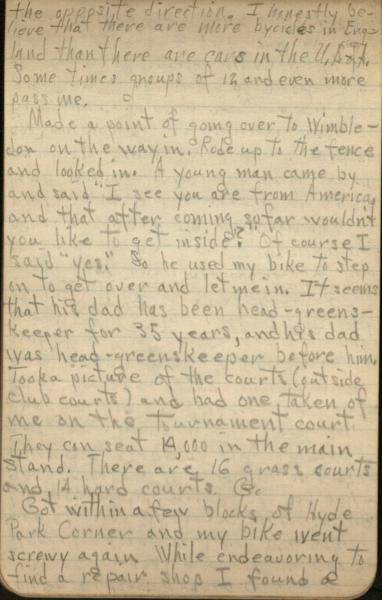 the opposite direction. I honestly be-
lieve that there are more bycicles in Eng-
land than there are cars in the U.S.A.
Some times groups of 12 and even more
pass me.
Made a point of going over to Wimble-
don on the way in. Rode up to the fence
and looked in. A young man came by
and said "I see you are from America,
and that after coming so far wouldn't
you like to get inside?" Of course I
said "yes." So he used my bike to step
on to get over and let me in. It seems
that his dad has been head-greens-
keeper for 35 years, and his dad
was head-greenskeeper before him.
Took a picture of the courts (outside
club courts) and had one taken of
me on the tournament court
They can seat 14,000 in the main
stand. There are 16 grass courts
and 14 hard courts.
Got within a few blocks of Hyde
Park Corner and my bike went
screwy again. While endeavoring to
find a repair shop I found a